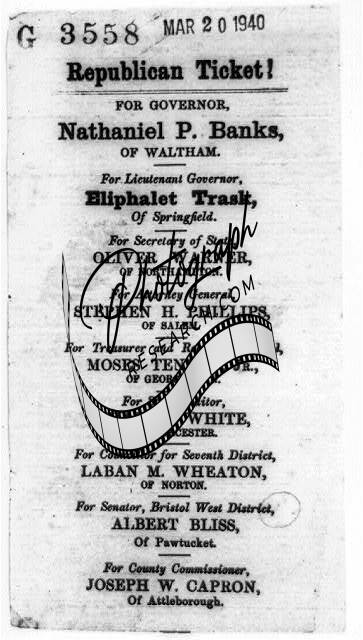 G 3558 MAR 20 1940
Republican Ticket!
FOR GOVERNOR,
Nathaniel P. Banks,
OF WALTHAM.
For Lieutenant Governor,
Eliphalet Trask,
Of Springfield.
For Secretary of State,
OLIVER WARNER,
OF NORTHAMPTON.
For Attorney General,
STEPHEN H. PHILLIPS,
OF SALEM.
For Treasurer and
MOSES JR.,
OF
For
WHITE,
For Councillor for Seventh District,
LABAN M. WHEATON,
OF NORTON.
For Senator, Bristol West District,
ALBERT BLISS,
Of Pawtucket.
For County Commissioner,
JOSEPH W. CAPRON,
Of Attleborough.
Photograph
RESEARCH.COM